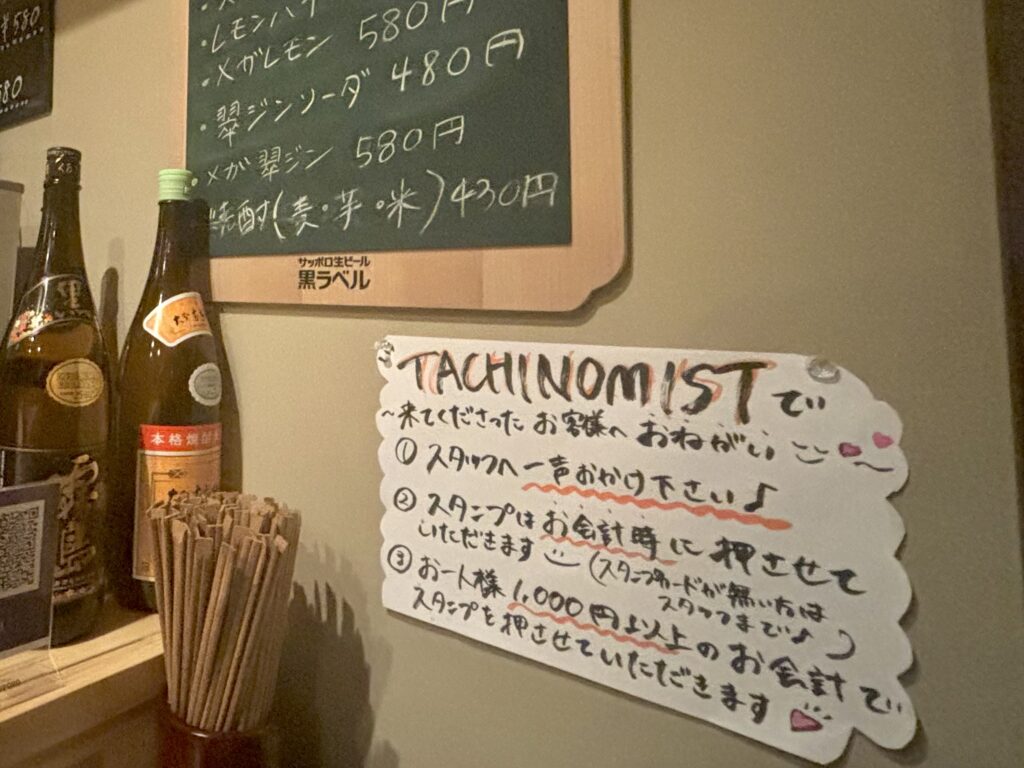 ¥580
580
・レモンハイ
・メガレモン 580円
・翠ジンソーダ 480円
・メガ翠ジン 580円
焼酎(麦・芋・米)430円
サッポロ生ビール
黒ラベル
本格焼酎
TACHINOMISTで
~来てくださった お客様へ おねがい~
① スタッフへ一声おかけ下さい♪
② スタンプはお会計時に押させて
いただきます (スタンプカードが無い方は
スタッフまで♪)
③ お一人様1,000円以上のお会計で
スタンプを押させていただきます